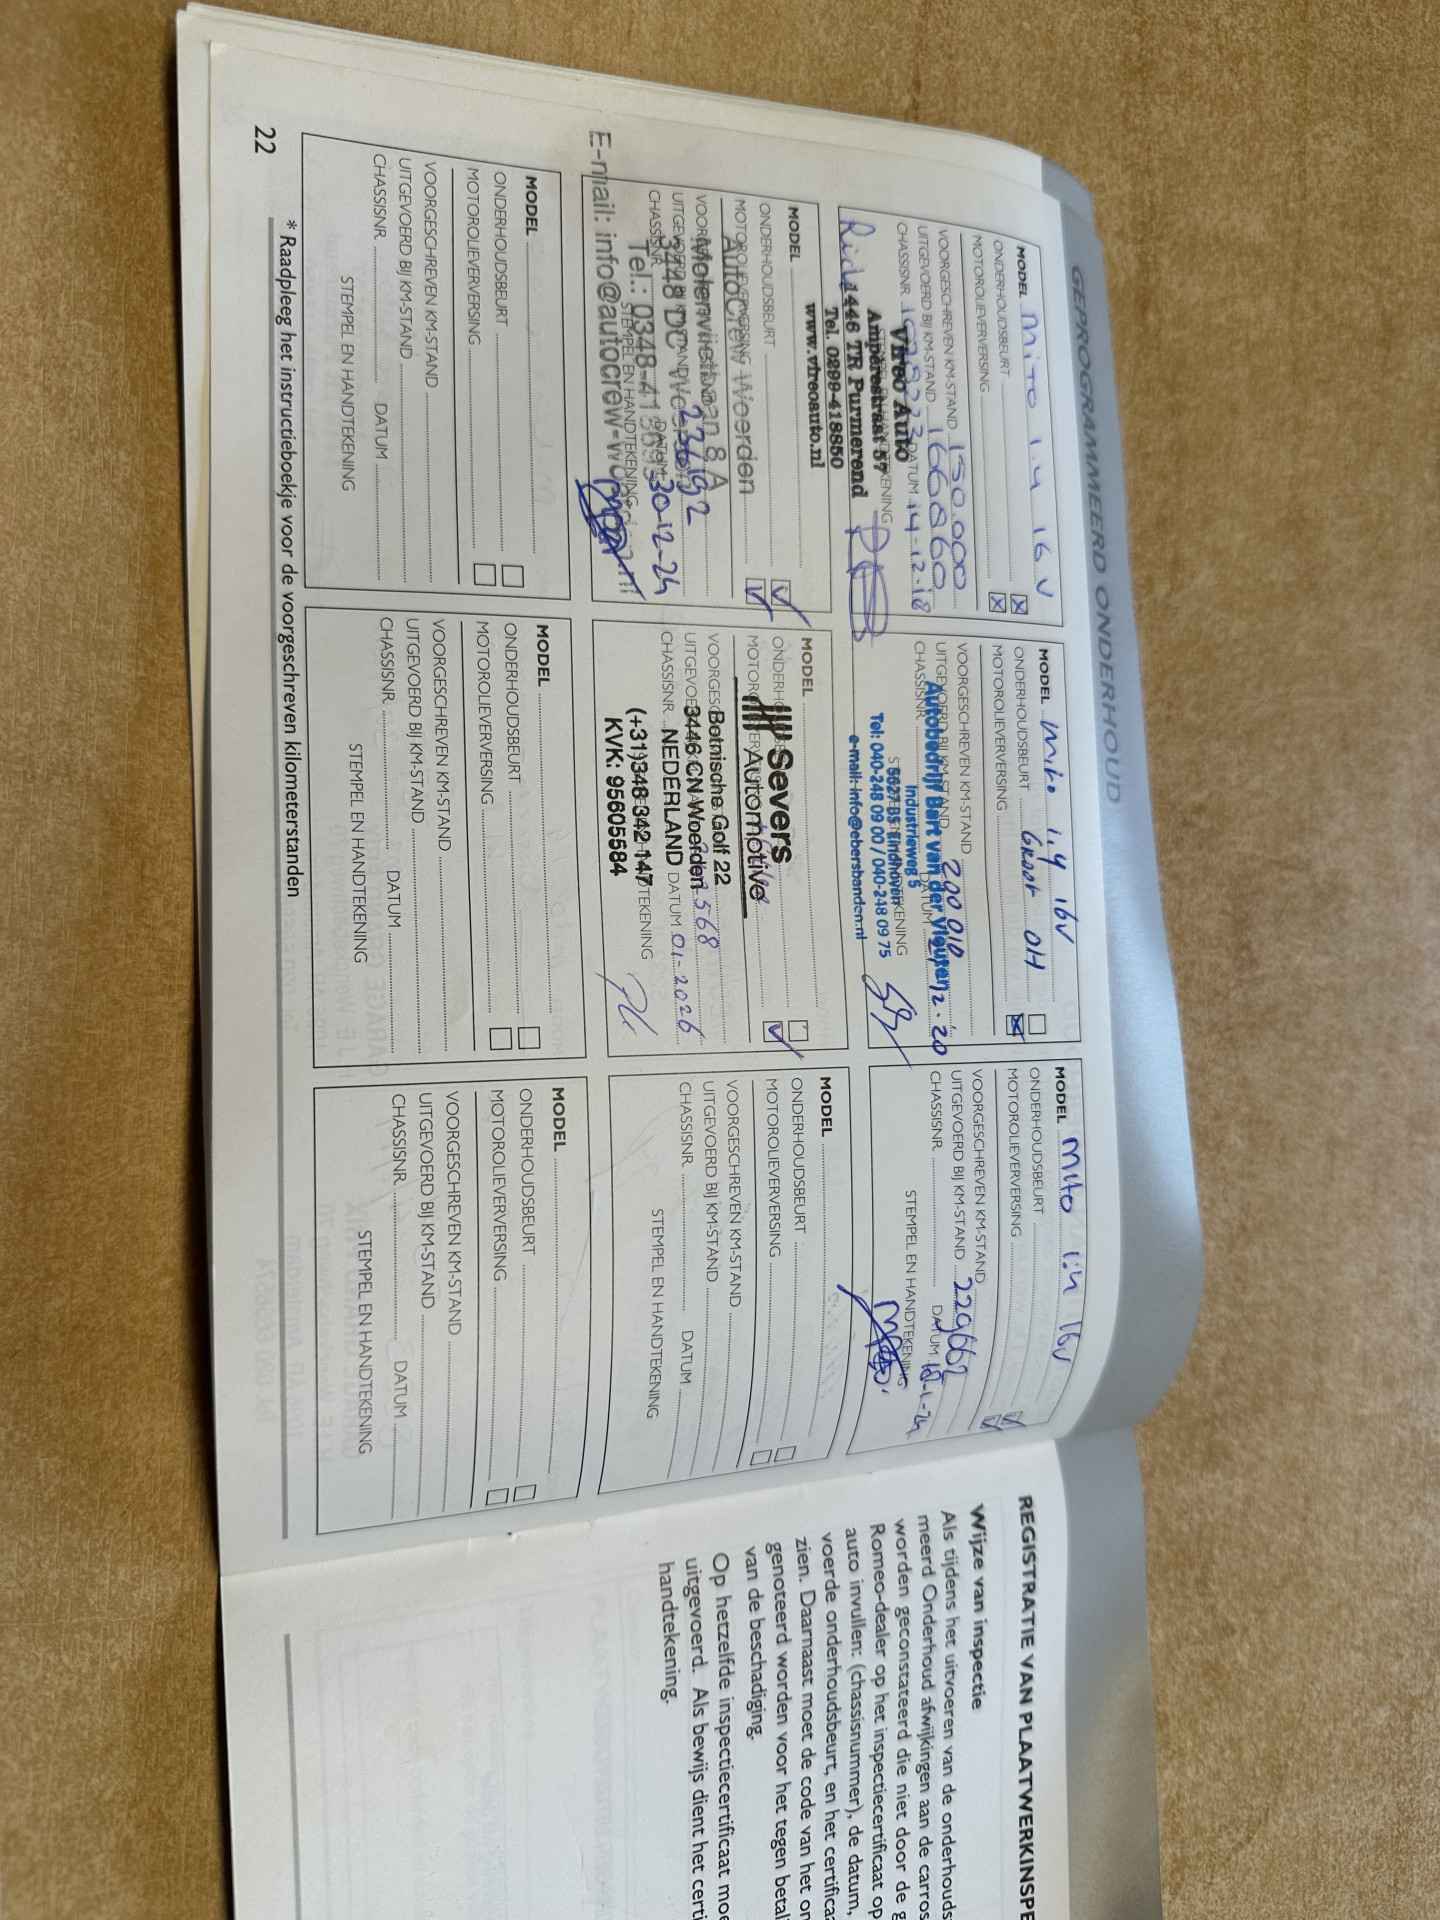 GEPROGRAMMEERD ONDERHOUD
MODEL Mito 1.4 16 V
ONDERHOUDSBEURT
MOTOROLIEVERVERSING
VOORGESCHREVEN KM-STAND 150.000
UITGEVOERD BIJ KM-STAND 166860
CHASSISNR. DATUM 14-12-18
Vireo Auto
Ampèrestraat 57
1446 TR Purmerend
Tel. 0299-418850
www.vireoauto.nl
MODEL Mito 1.4 16V
ONDERHOUDSBEURT Groot OH
MOTOROLIEVERVERSING
VOORGESCHREVEN KM-STAND
UITGEVOERD BIJ KM-STAND 200 010
CHASSISNR. DATUM
Autobedrijf Bart van der Vleuten
Industrieweg 5
5627 BS Eindhoven
Tel: 040-248 09 00 / 040-248 09 75
e-mail: info@ebersbanden.nl
MODEL Mito 1.4 16V
ONDERHOUDSBEURT
MOTOROLIEVERVERSING
VOORGESCHREVEN KM-STAND
UITGEVOERD BIJ KM-STAND 229662
CHASSISNR. DATUM
STEMPEL EN HANDTEKENING
MODEL
ONDERHOUDSBEURT
MOTOROLIEVERVERSING
AutoCrew Woerden
Molenvlietbaan 8 A
3448 DC Woerden
236192
CHASSISNR. DATUM 30-12-24
STEMPEL EN HANDTEKENING
E-mail: info@autocrew-woerden.nl
MODEL
Severs
Automotive
Botnische Golf 22
3446 CN Woerden
NEDERLAND
CHASSISNR. DATUM 01-2026
(+31)348 342 147
KVK: 95605584
MODEL
ONDERHOUDSBEURT
MOTOROLIEVERVERSING
VOORGESCHREVEN KM-STAND
UITGEVOERD BIJ KM-STAND
CHASSISNR. DATUM
STEMPEL EN HANDTEKENING
MODEL
ONDERHOUDSBEURT
MOTOROLIEVERVERSING
VOORGESCHREVEN KM-STAND
UITGEVOERD BIJ KM-STAND
CHASSISNR. DATUM
STEMPEL EN HANDTEKENING
MODEL
ONDERHOUDSBEURT
MOTOROLIEVERVERSING
VOORGESCHREVEN KM-STAND
UITGEVOERD BIJ KM-STAND
CHASSISNR. DATUM
STEMPEL EN HANDTEKENING
MODEL
ONDERHOUDSBEURT
MOTOROLIEVERVERSING
VOORGESCHREVEN KM-STAND
UITGEVOERD BIJ KM-STAND
CHASSISNR. DATUM
STEMPEL EN HANDTEKENING
* Raadpleeg het instructieboekje voor de voorgeschreven kilometerstanden
22
REGISTRATIE VAN PLAATWERKINSPE
Wijze van inspectie
Als tijdens het uitvoeren van de onderhouds
meerd Onderhoud afwijkingen aan de carros
worden geconstateerd die niet door de g
Romeo-dealer op het inspectiecertificaat op
auto invullen: (chassisnummer), de datum,
voerde onderhoudsbeurt, en het certifica
zien. Daarnaast moet de code van het on
genoteerd worden voor het tegen betal
van de beschadiging.
Op hetzelfde inspectiecertificaat moe
uitgevoerd. Als bewijs dient het certi
handtekening.